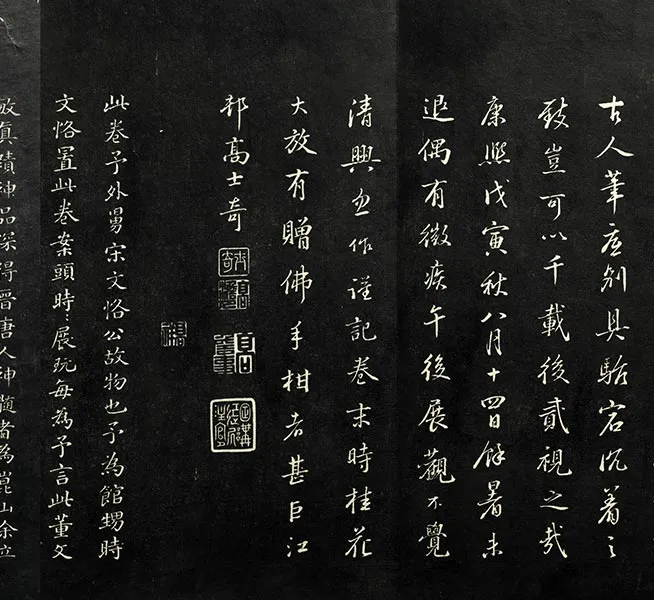 古人筆底別具點宕沉着之
致豈可以千載後貳視之哉
康熙戊寅秋八月十四日餘暑未
退偶有微疾午後展觀不覺
清興忽作謹記卷末時桂花
大放有贈佛手柑者甚巨江
邨高士奇
此卷予外舅宋文恪公故物也予為館甥時
文恪置此卷案頭時時展玩每為予言此董文
敏真蹟神品深得晉唐人神髓者為崑山余立